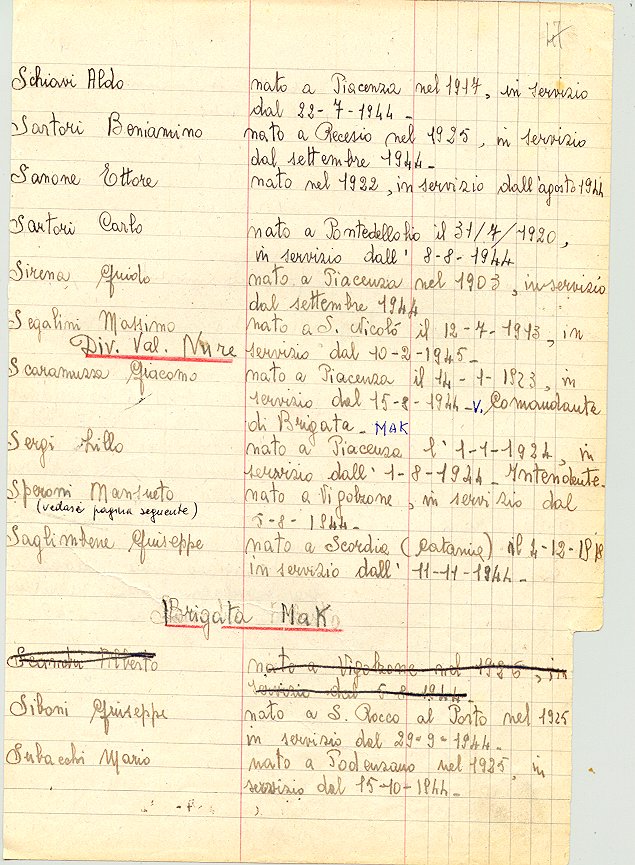 17
Schiavi Aldo nato a Piacenza nel 1917, in servizio
dal 22-7-1944-
Sartori Beniamino nato a Recesio nel 1925, in servizio
dal settembre 1944-
Sanone Ettore nato nel 1922, in servizio dall'agosto 1944
Sartori Carlo nato a Pontedellolio il 31/7/1920,
in servizio dall' 8-8-1944
Sirena Guido nato a Piacenza nel 1903, in servizio
dal settembre 1944
Segalini Massimo nato a S. Nicolò il 12-7-1913, in
Div. Val. Nure servizio dal 10-2-1945-
Scaramuzza Giacomo nato a Piacenza il 14-1-1923, in
servizio dal 15-8-1944-V. Comandante
di Brigata- MAK
Sergi Lillo nato a Piacenza l' 1-1-1924, in
servizio dall' 1-8-1944- Intendente-
Speroni Mansueto nato a Vigolzone, in servizio dal
(vedasi pagina seguente) 5-8-1944-
Saglimbene Giuseppe nato a Scordia (Catania) il
in servizio dall' 11-11-1944-
Brigata MaK
Alberto nato a Vigolzone nel 1926, in
servizio dal 5-8-1944-
Siboni Giuseppe nato a S. Rocco al Porto nel 1925
in servizio dal 29-9-1944-
Subacchi Mario nato a Podenzano nel 1925, in
servizio dal 15-10-1944-